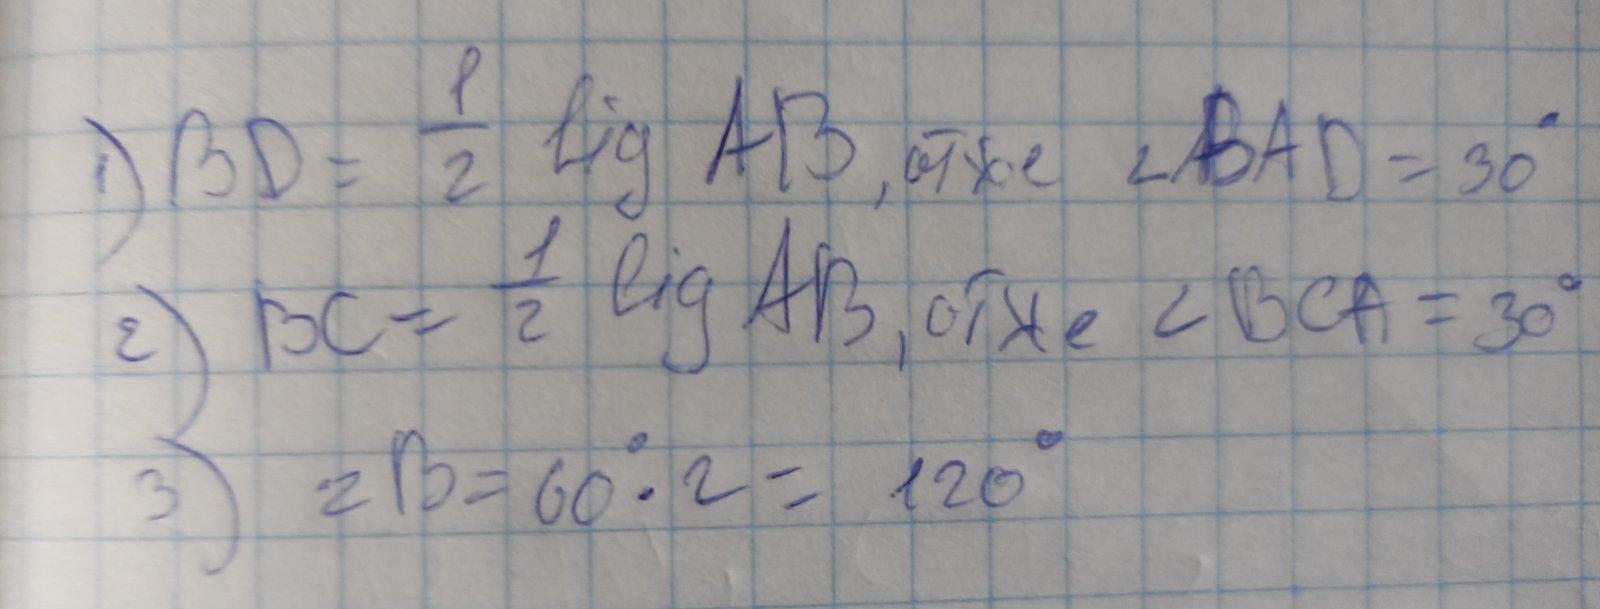 1) BD = 1/2 від AB, отже ∠BAD = 30°
2) BC = 1/2 від AB, отже ∠BCA = 30°
3) ∠B = 60° · 2 = 120°